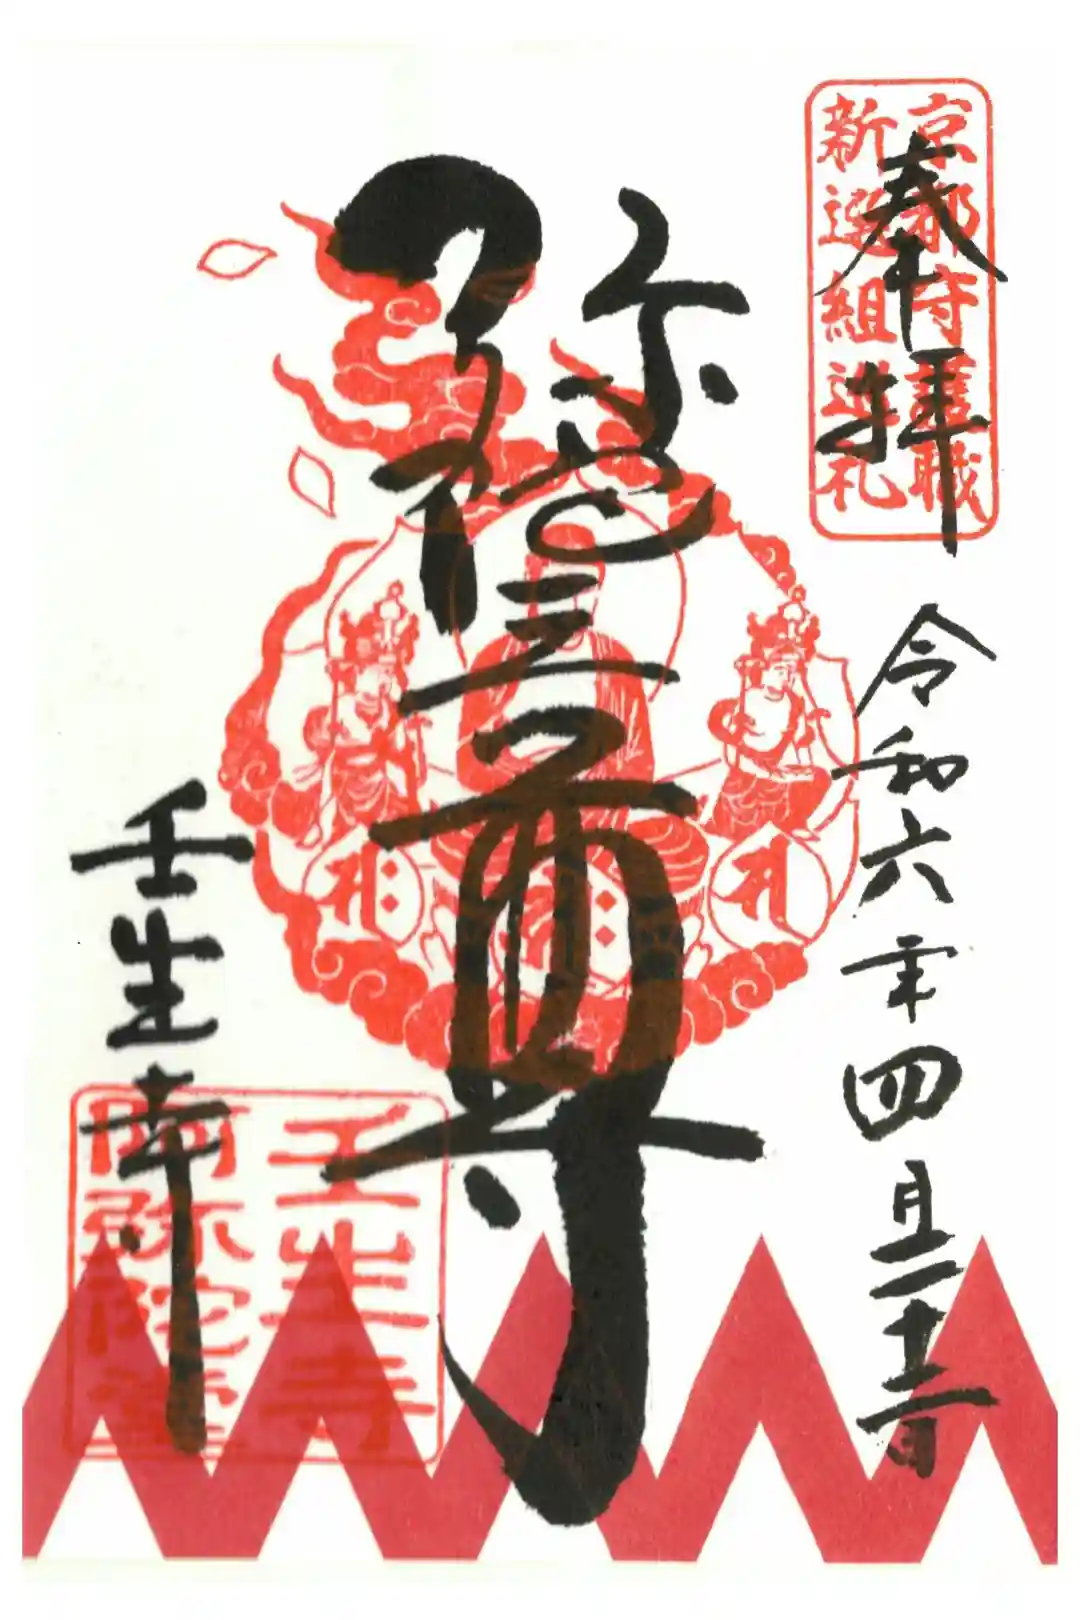 京都守護職
新選組巡札
奉拝
令和六年四月二十二日
弥陀三尊
壬生寺
壬生寺
阿弥陀堂